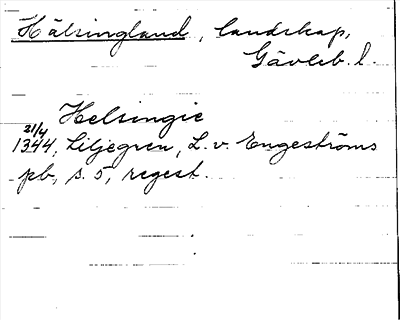 Hälsingland, landskap,
Gävleb. l.
Helsingie
21/4
1344, Liljegren, L. v. Engeströms
pb, s. 5, regest.